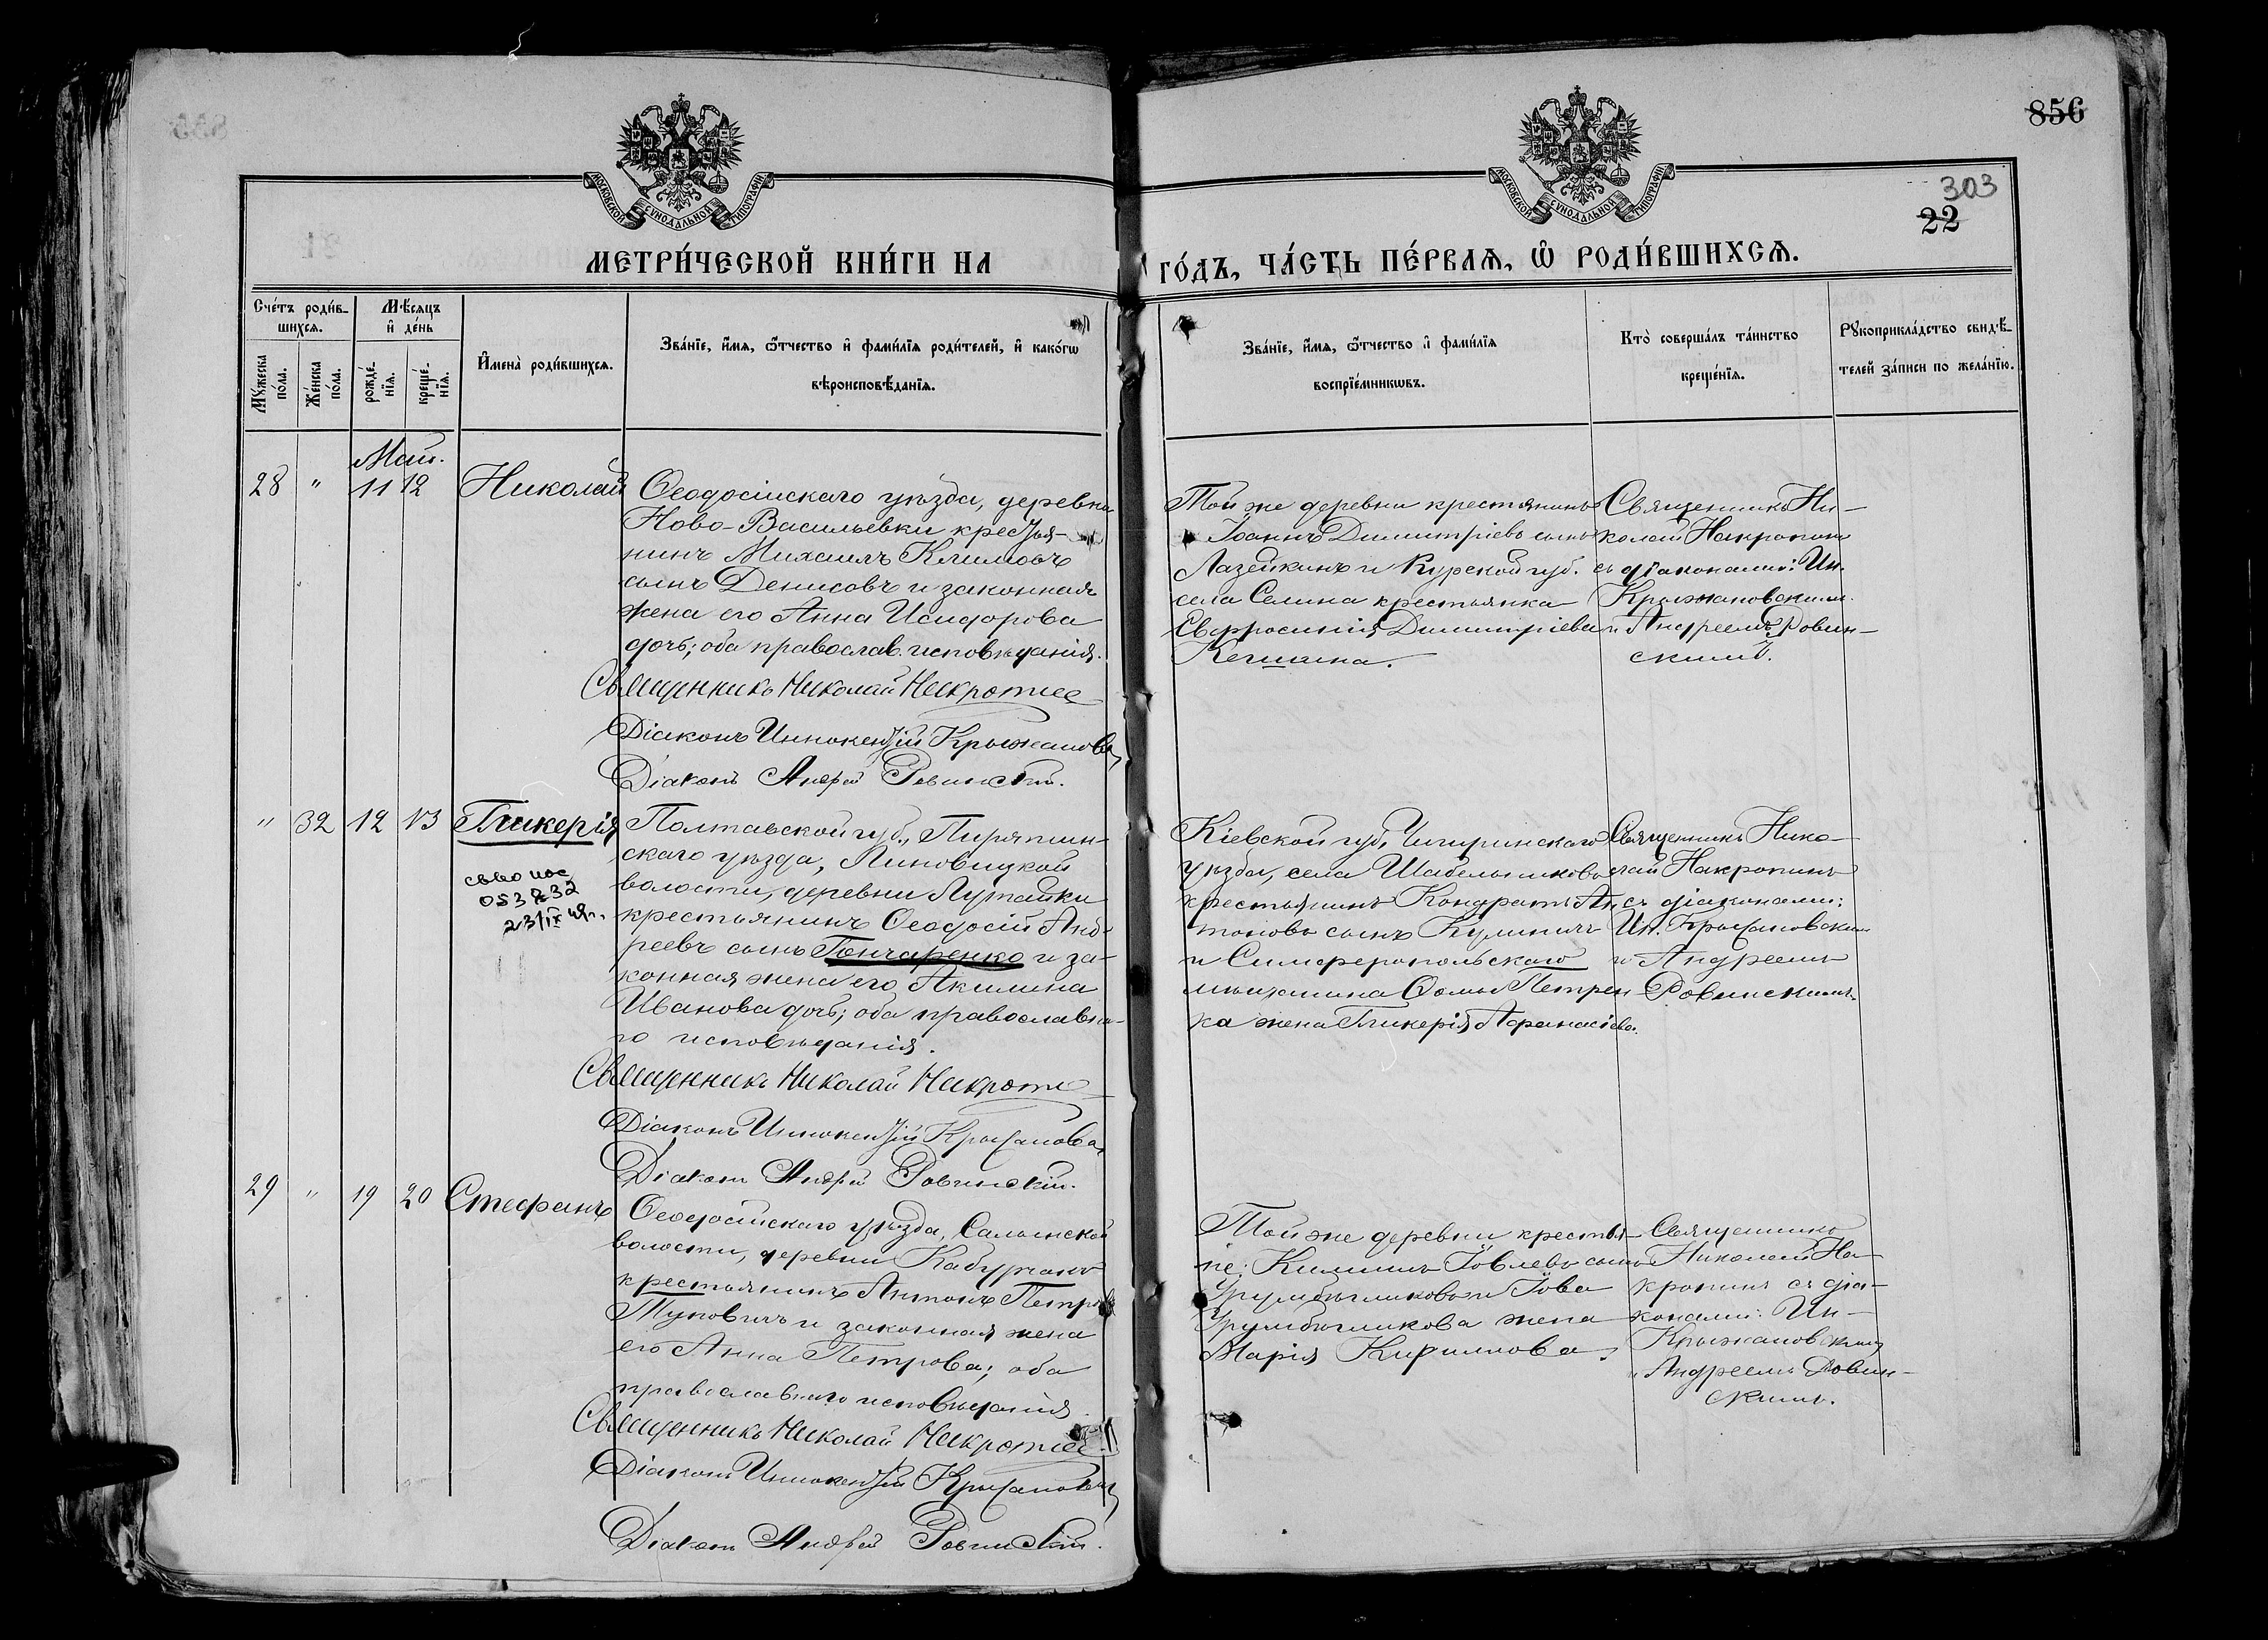 856
303
22
МОСКОВСКОЙ СУНОДАЛЬНОЙ ТИПОГРАФІИ
МОСКОВСКОЙ СУНОДАЛЬНОЙ ТИПОГРАФІИ
МЕТРИ́ЧЕСКОЙ КНИ́ГИ НА
ГО́ДЪ, ЧА́СТЬ ПЕ́РВАѦ, Ѽ РОДИ́ВШИХСѦ.
Сче́тъ роди́в-
шихсѧ.
Мѣ́сѧцъ
и҆ де́нь
Мꙋ́жеска по́ла.
Же́нска по́ла.
рожде́-
нїѧ.
креще́-
нїѧ.
И҆мена̀ роди́вшихсѧ.
Зва́нїе, и҆́мѧ, ѻ҆́тчество и҆ фами́лїѧ роди́телей, и҆ како́гѡ
вѣроисповѣ́данїѧ.
Зва́нїе, и҆́мѧ, ѻ҆́тчество и҆ фами́лїѧ
воспрїе́мникѡвъ.
Кто̀ соверша́лъ та́инство
креще́нїѧ.
Рꙋкоприкла́дство свидѣ́-
телей за́писи по жела́нїю.
Май.
28 " 11 12 Николай
Ѳеодосійскаго уѣзда, деревни
Ново-Васильевки крестья-
нинъ Михаилъ Климовъ
сынъ Денисовъ и законная
жена его Анна Исидорова
дочь; оба православ. исповѣданія.
Священникъ Николай
Діаконъ Иннокентій Крыжановск
Діаконъ Андрей Ровинскій.
Той же деревни крестянинъ
Іоаннъ Димитріевъ сынъ
Лазейкинъ и Курской губ.
села Селина крестьянка
Евфросинія Димитріева
Священникъ Ни-
колай Накропинъ
съ діаконами: Ин.
Крыжановскимъ
и Андреемъ Ровин-
скимъ.
" 32 12 13 Гликерія
053832
23/IX 49г.
Полтавской губ., Пирятин-
скаго уѣзда, Линовицкой
волости, деревни Лутайки
крестьянинъ Ѳеодосій Анд-
реевъ сынъ Гончаренко и за-
конная жена его Акилина
Иванова дочь; оба православна-
го исповѣданія.
Священникъ Николай
Діаконъ Иннокентій Крыжановск
Діаконъ Андрей Ровинскій.
Кіевской губ, Чигиринскаго
уѣзда, села Шабельниково
крестьянинъ Кондратъ Ан-
тоновъ сынъ Кулиничъ
и Симферопольскаго
мѣщанина Ѳомы Петрен-
ка жена Гликерія Аѳанасіева.
Священникъ Нико-
лай Накропинъ
съ діаконами:
Ин. Крыжановским
и Андреемъ
Ровинскимъ.
29 " 19 20 Стефанъ
Ѳеодосійскаго уѣзда, Салынской
волости, деревни
крестьянинъ Антонъ Петровъ
и законная жена
его Анна Петрова; оба
православнаго исповѣданія
Священникъ Николай
Діаконъ Иннокентій Крыжановск
Діаконъ Андрей Ровинскій.
Той же деревни крестья-
не: Іовлевъ сынъ
и Іова
жена
Марія Кириллова.
Священникъ
Николай На-
кропинъ съ діа-
конами: Ин-
Крыжановским
и Андреемъ Ровин-
скимъ.